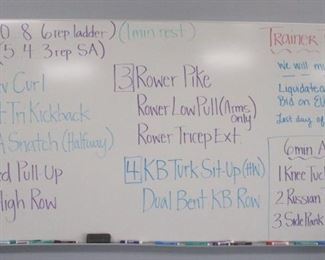 0 8 6 rep ladder) (1 min rest)
(5 4 3 rep SA)
Curl
Tri Kickback
Snatch (Halfway)
Pull-Up
High Row
3 Rower Pike
Rower Low Pull (Arms only)
Rower Tricep Ext.
4 KB Turk Sit-Up (HW)
Dual Bent KB Row
Trainer
We will mi
Liquidate
Bid on
Last day of
6 min A
1 Knee Tuck
2 Russian
3 Side Plank